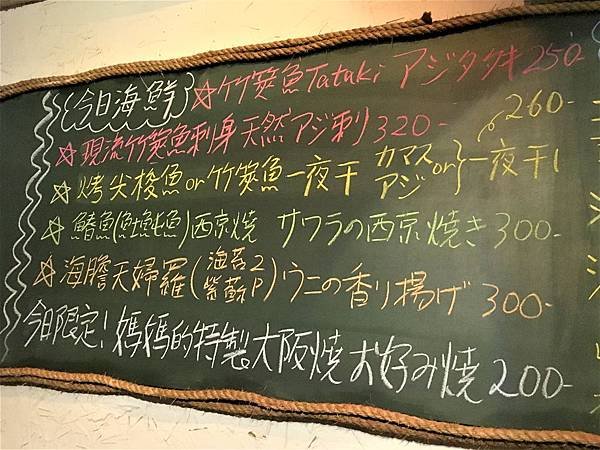 今日海鮮 ☆竹筴魚Tataki アジタタキ250-
☆現流竹筴魚刺身 天然アジ刺り320-
☆烤尖梭魚or竹筴魚一夜干 カマスorアジ 一夜干し 260-
☆鰆魚(魠魠魚)西京燒 サワラの西京焼き300-
☆海膽天婦羅(海苔2 紫蘇P)ウニの香り揚げ300-
今日限定!媽媽的特製大阪燒お好み焼200-